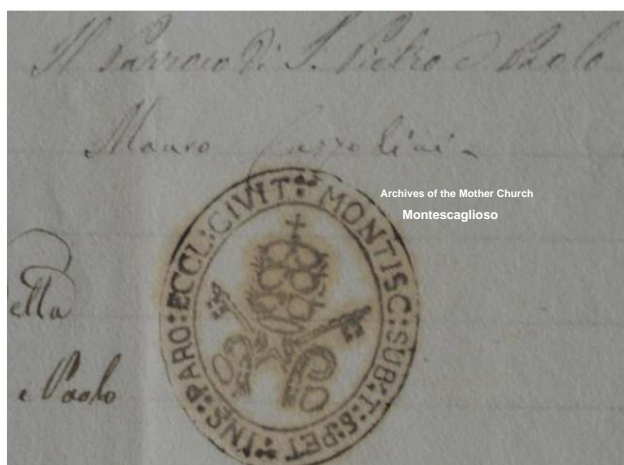 Il Parroco di S. Pietro e Paolo
Mauro
Archives of the Mother Church
Montescaglioso
INS: PARO: ECCL: CIVIT: MONTISC: SUB: T: S: PET:
ella
e Paolo